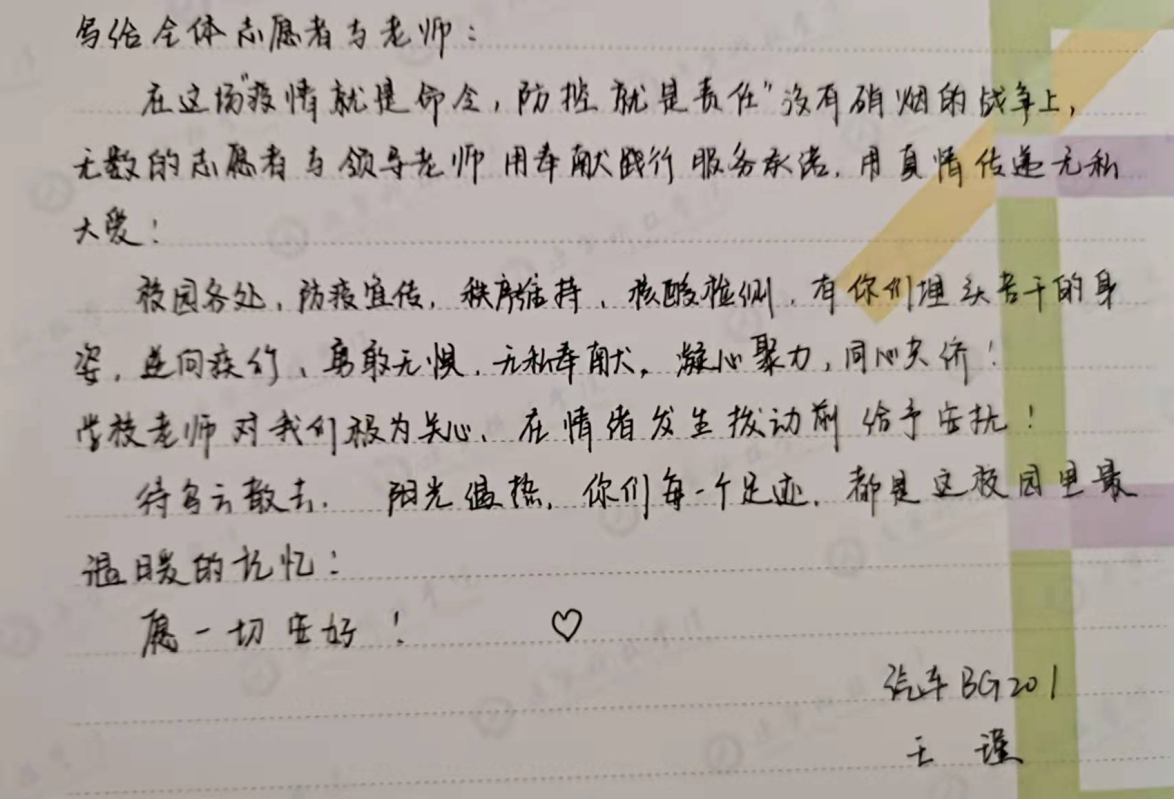 写给全体志愿者与老师：
在这场"疫情就是命令，防控就是责任"没有硝烟的战争上，
无数的志愿者与领导老师用奉献践行服务承诺，用真情传递无私
大爱！
校园各处，防疫宣传，秩序维持，核酸检测，有你们埋头苦干的身
姿，逆向疾行、勇敢无惧，无私奉献，凝心聚力，同心共济！
学校老师对我们极为关心、在情绪发生拨动前给予安抚！
待乌云散去，阳光温热，你们每一个足迹，都是这校园里最
温暖的记忆！
愿一切安好！♡
汽车BG201
王 谨